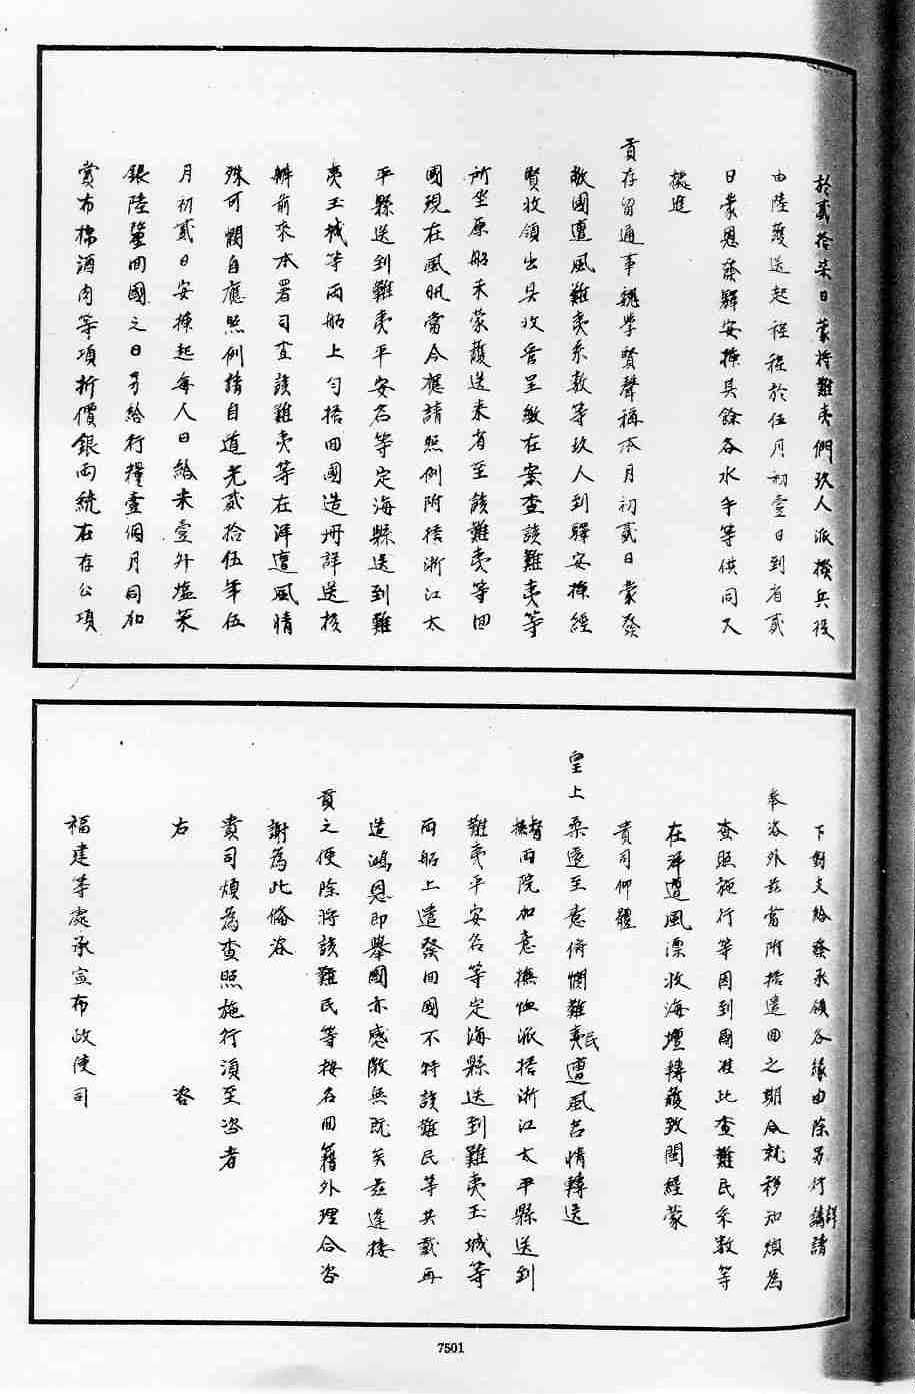 於貳拾柒日蒙將難夷們玖人派撥兵役
由陸護送起程於伍月初壹日到省貳
日蒙恩發驛安揷其餘各水手等供同又
據進
貢存留通事魏學賢聲稱本月初貳日蒙發
敝國遭風難夷系數等玖人到驛安揷經
賢收領出具收管呈繳在案查該難夷等
所坐原船未蒙護送來省至該難夷等回
國現在風帆當令應請照例附搭浙江太
平縣送到難夷平安名等定海縣送到難
夷玉城等兩船上勻搭回國造册詳送核
辦前來本署司查該難夷等在洋遭風情
殊可憫自應照例請自道光貳拾伍年伍
月初貳日安揷起每人日給米壹升塩菜
銀陸釐回國之日另給行糧壹個月同加
賞布棉酒肉等項折價銀兩統在存公項
下動支給發承領各緣由除另行詳請
奉咨外玆當附搭遣回之期合就移知煩為
查照施行等因到國准此查難民系数等
在洋遭風漂收海壇轉護致閩經蒙
貴司仰體
皇上柔遠至意俯憫難夷民遭風苦情轉送
督撫兩院加意撫恤派搭浙江太平縣送到
難夷平安名等定海縣送到難夷玉城等
兩船上遣發回國不特該難民等共戴再
造鴻恩即舉國亦感激無既矣玆逢接
貢之便除將該難民等按名回籍外理合咨
謝為此俻咨
貴司煩為查照施行須至咨者
右 咨
福建等處承宣布政使司
7501